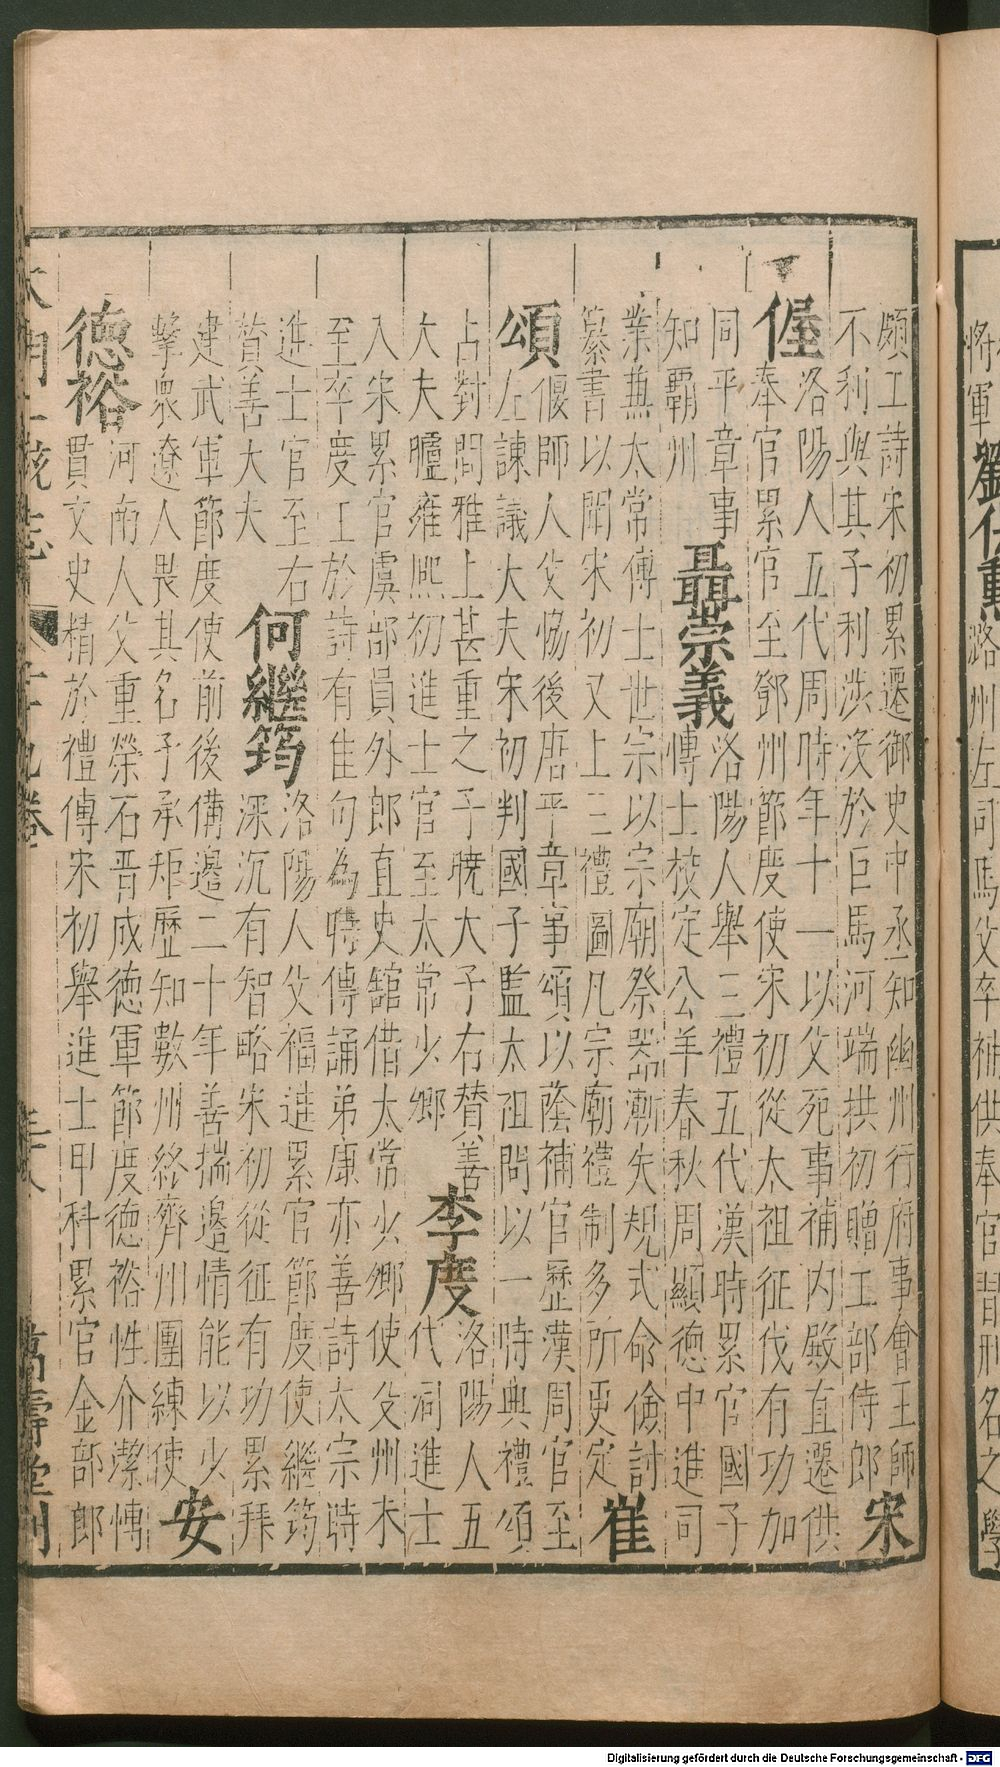 頗工詩宋初累遷御史中丞知幽州行府事會王師
不利與其子利涉沒於巨馬河端拱初贈工部侍郎
宋
偓
洛陽人五代周時年十一以父死事補內殿直遷供
奉官累官至鄧州節度使宋初從太祖征伐有功加
同平章事
知霸州
聶崇義
洛陽人舉三禮五代漢時累官國子
博士校定公羊春秋周顯德中進司
業兼太常博士世宗以宗廟祭器漸失規式命儉討
纂書以聞宋初又上三禮圖凡宗廟禮制多所更定
崔
頌
偃師人父協後唐平章事頌以蔭補官歷漢周官至
左諫議大夫宋初判國子監太祖問以一時典禮頌
占對問雅上甚重之子曉大子右贊善
大夫臚雍熙初進士官至太常少鄉
李度
洛陽人五
代周進士
入宋累官虞部員外郎直史館借太常少鄉使交州未
至卒度工於詩有佳句為時傳誦弟康亦善詩太宗時
進士官至右
贊善大夫
何繼筠
洛陽人父福進累官節度使繼筠
深沉有智略宋初從征有功累拜
建武軍節度使前後備邊二十年善揣邊情能以少
擊眾遼人畏其名子承矩歷知數州終齊州團練使
安
德裕
河南人父重榮石晉成德軍節度德裕性介潔博
貫文史精於禮傳宋初舉進士甲科累官金部郎
大明一統志
二十九卷
三十八
萬壽堂刊
將軍
劉仁勳
潞州左司馬父卒補供奉官習刑名之學
Digitalisierung gefördert durch die Deutsche Forschungsgemeinschaft - DFG